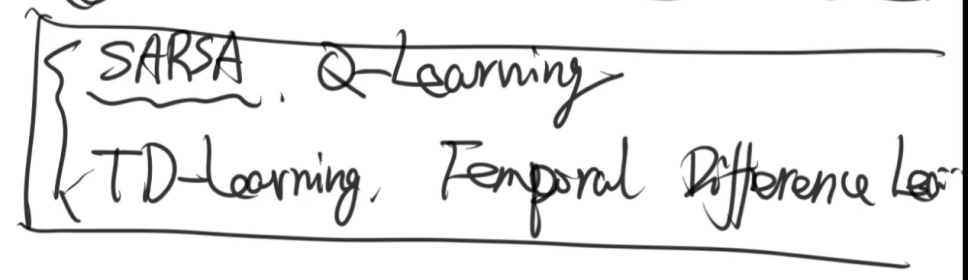 SARSA. Q-Learning
TD-Learning. Temporal Difference Lea